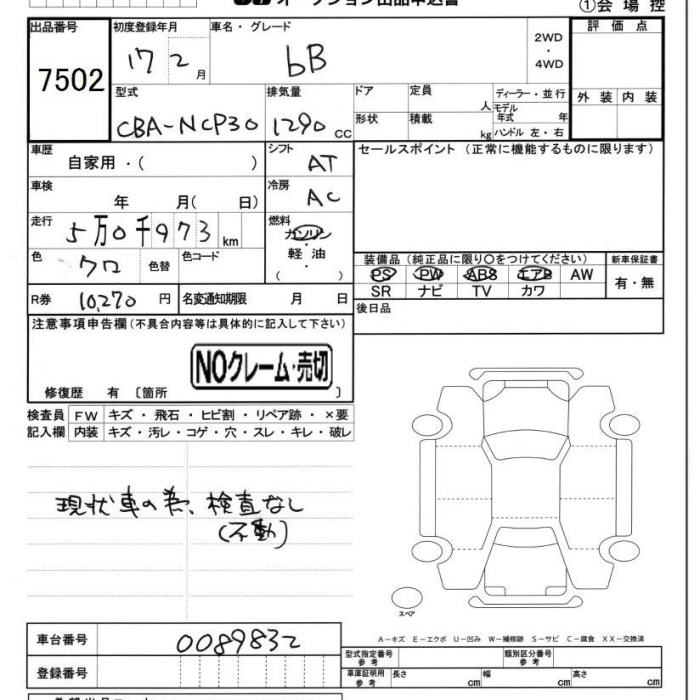 オークション出品申込書
①会場控
出品番号 7502
初度登録年月 17 2 月
車名・グレード bB
2WD
・
4WD
評価点
外装 内装
型式 CBA-NCP30
排気量 1290 cc
ドア
形状
定員 人
積載 kg
ディーラー・並行
モデル年式 年
ハンドル 左・右
車歴 自家用・( )
シフト AT
セールスポイント(正常に機能するものに限ります)
車検 年 月( 日)
冷房 AC
走行 5万0千973 km
燃料 ガソリン
・
軽油
・
( )
色 クロ 色替 色コード
装備品(純正品に限り○をつけてください)
PS PW ABS エアB AW
SR ナビ TV カワ
新車保証書
有・無
R券 10,270 円
名変通知期限 月 日
後日品
注意事項申告欄(不具合内容等は具体的に記入して下さい)
NOクレーム・売切
修復歴 有〔箇所 〕
検査員 FW キズ・飛石・ヒビ割・リペア跡・×要
記入欄 内装 キズ・汚レ・コゲ・穴・スレ・キレ・破レ
現状車の為、検査なし
(不動)
スペア
A-キズ E-エクボ U-凹み W-補修跡 S-サビ C-腐食 XX-交換済
車台番号 0089832
登録番号
型式指定番号 参考
類別区分番号 参考
車庫証明用 参考 長さ cm 幅 cm 高さ cm